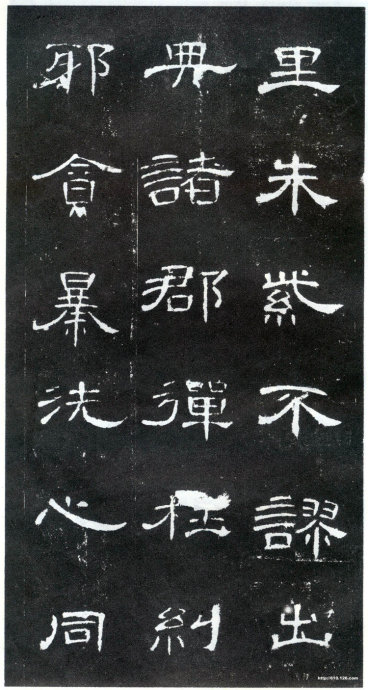 里朱紫不謬出
典諸郡彈枉糾
邪貪暴洗心同
http://610.126.com